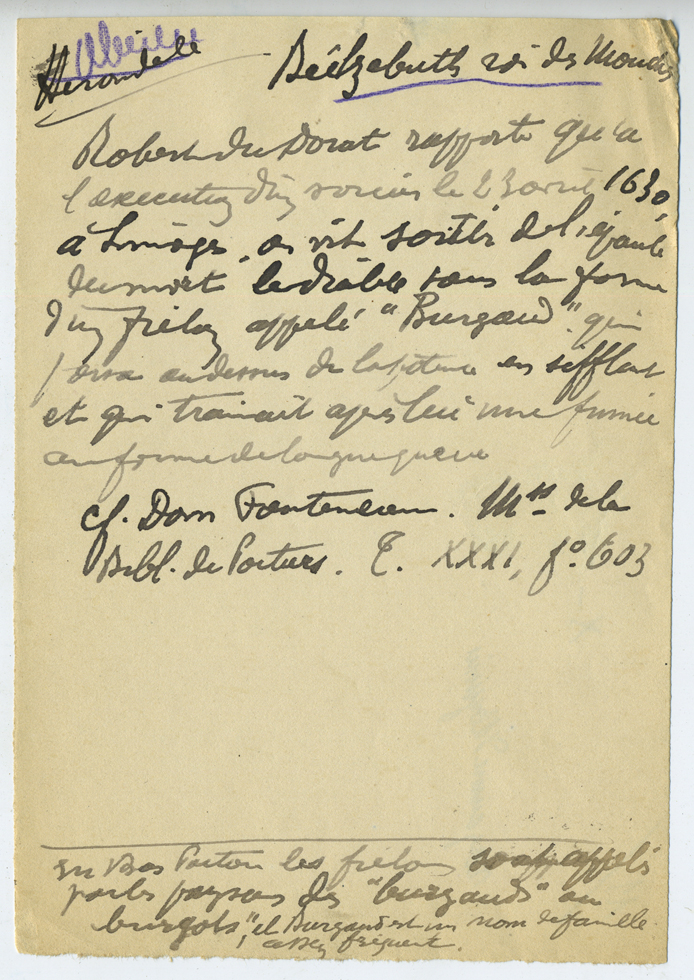 Abeille
Hirondelle
Béelzebuth roi des Mouches
Robert du Dorat rapporte qu'à
l'execution d'un sorcier le 23 avril 1630,
à Limoges, on vit sortir de l'épaule
du mort le diable sous la forme
d'un frelon appelé "Burgaud" qui
passa au dessus de la potence en sifflant
et qui trainait après lui une fumée
en forme de longue queue
cf. Dom Fonteneau. Mss de la
Bibl. de Poitiers. T. XXXI, fo. 603
En Bas Poitou les frelons sont appelés
par les paysans des "burgauds" ou
burgots", et Burgaud est un nom de famille
assez fréquent.